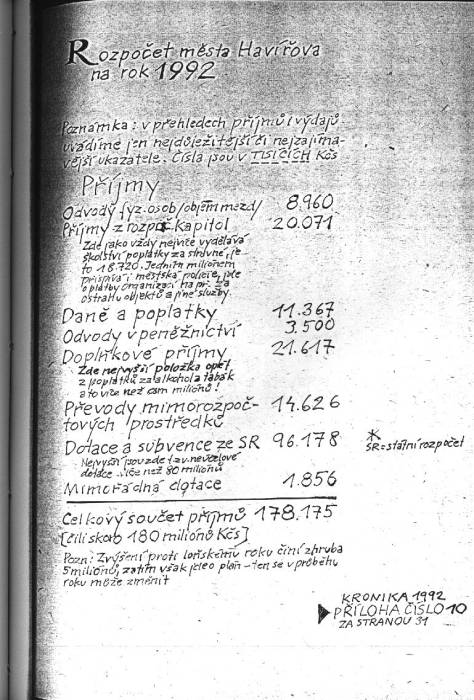 Rozpočet města Havířova
na rok 1992
Poznámka: v přehledech příjmů i výdajů
uvádíme jen nejdůležitější či nejzajíma-
vější ukazatele. Čísla jsou v TISÍCÍCH Kčs
Příjmy
Odvody fyz. osob/objem mezd/ 8.960
Příjmy z rozpoč. kapitol 20.071
Zde jako vždy nejvíce vydělává
školství poplatky za stravné, je
to 18.720. Jedním milionem
přispívá i městská policie, jde
o platby organizací na př. za
ostrahu objektů a jiné služby.
Daně a poplatky 11.367
Odvody v peněžnictví 3.500
Doplňkové příjmy 21.617
Zde nejvyšší položka opět
z poplatků za alkohol a tabák
a to více než osm milionů!
Převody mimorozpoč-
tových prostředků 14.626
Dotace a subvence ze SR 96.178
* SR=státní rozpočet
Nejvyšší jsou zde t.zv. neúčelové
dotace více než 80 milionů
Mimořádná dotace 1.856
Celkový součet příjmů 178.175
[čili skoro 180 milionů Kčs]
Pozn: Zvýšení proti loňskému roku činí zhruba
5 milionů, zatím však jde o plán – ten se v průběhu
roku může změnit
KRONIKA 1992
PŘÍLOHA ČÍSLO 10
ZA STRANOU 31